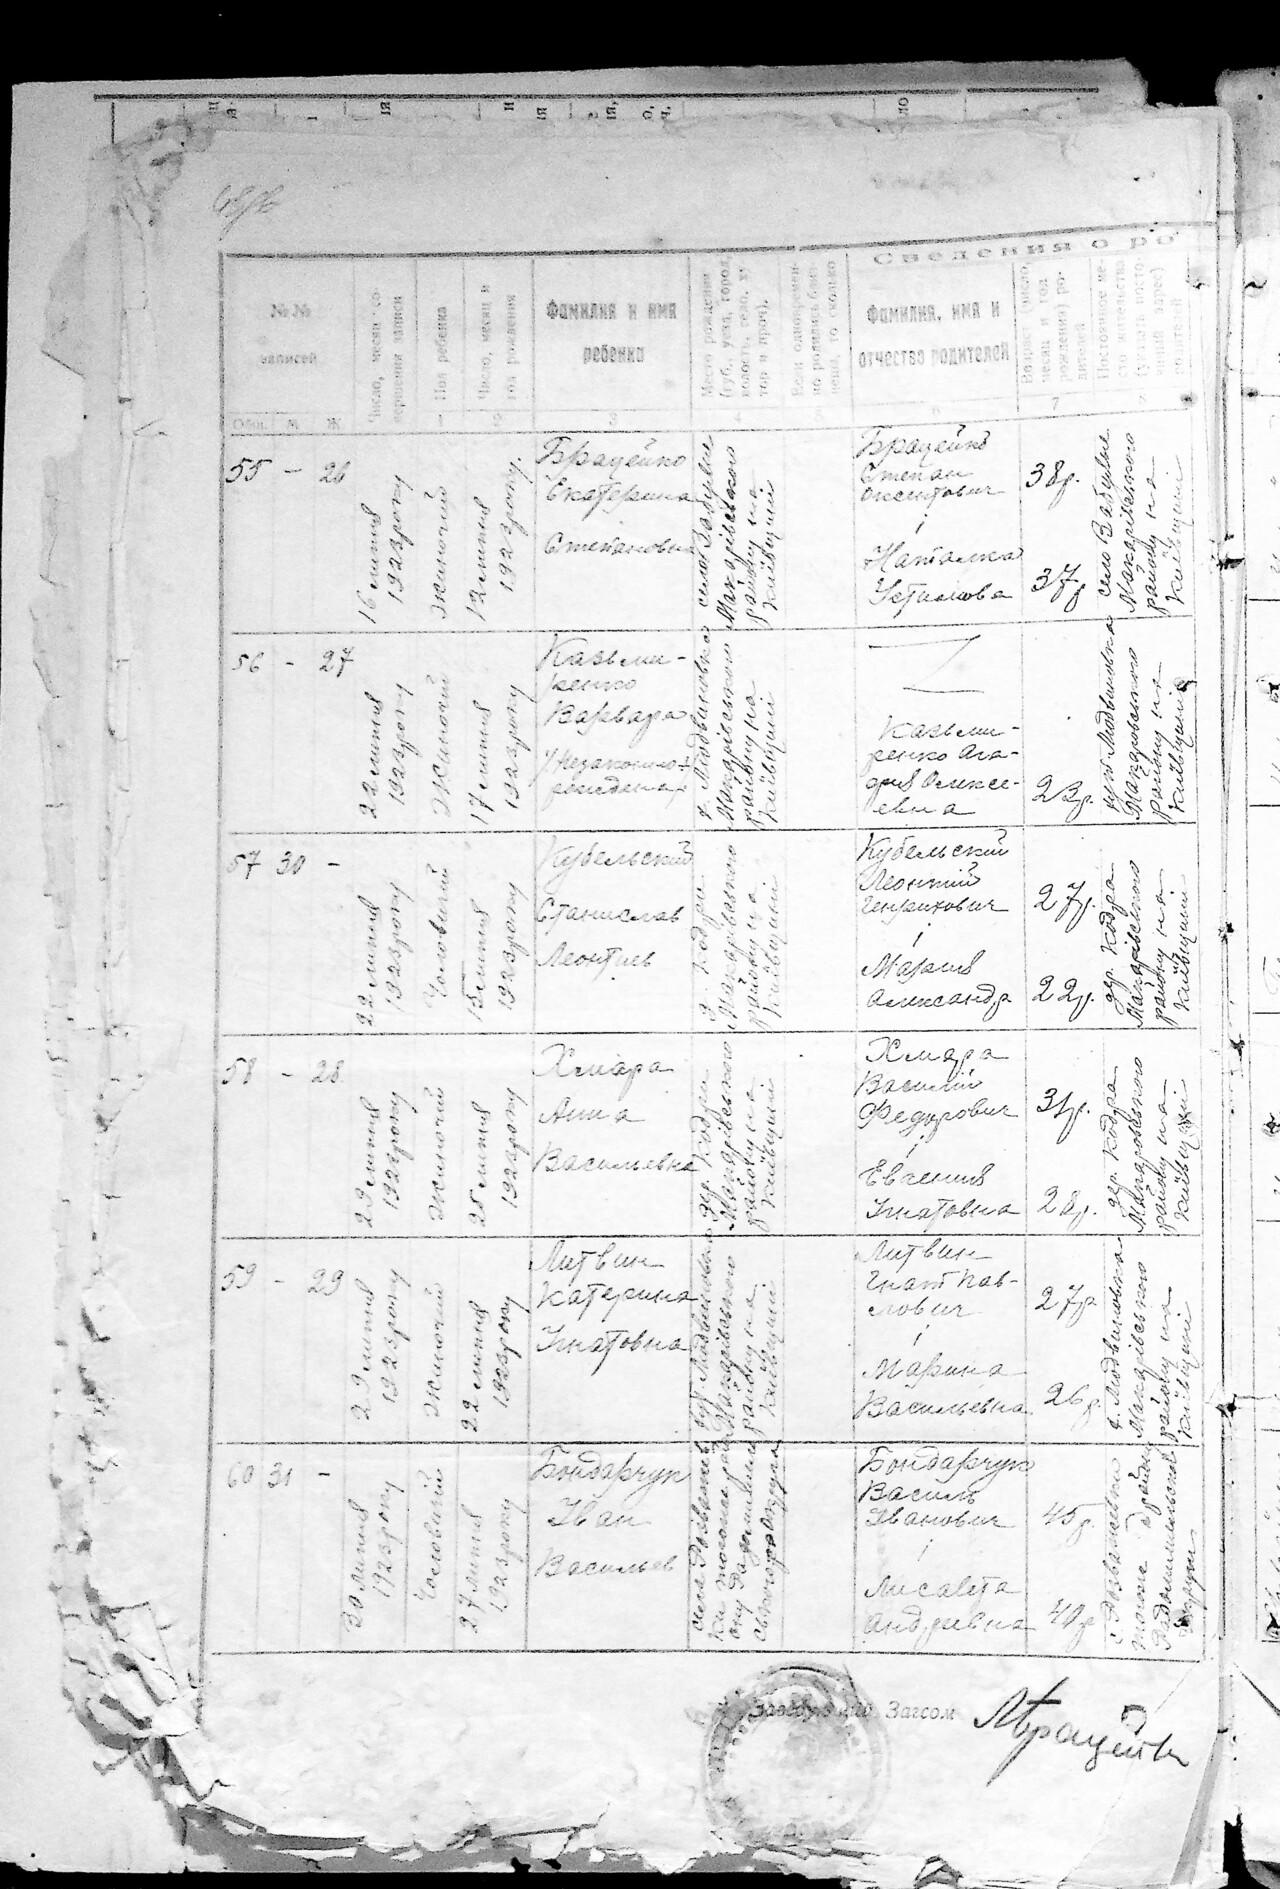 Сведения о ро
№№
записей
Число, месяц со-
вершения записи
Пол ребенка
Число, месяц и
год рождения
Фамилия и имя
ребенка
Место рождения
(губ., уезд, город,
волость, село, ху-
тор и проч.).
Если одновремен-
но родились близ-
нецы, то сколько
Фамилия, имя и
отчество родителей
Возраст (число,
месяц и год
рождения) ро-
дителей
Постоянное ме-
сто жительства
родителей
Общ. М Ж 1 2 3 4 5 6 7
55 – 26
16 липня
1923 року
Жіночій
12 липня
1923 року
Брацейко
Екатерина
Степановна
село Забуяне
Макарівського
району на
Київщині
Брацейко
Степан
Оксентович
і
Наталка
Устимова
38 р.
37 р
село Забуяне
Макарівського
району на
Київщині
56 – 27
22 липня
1923 року
Жіночій
17 липня
1923 року
Казьми-
ренко
Варвара
/Незаконно-
рождена/
х. Людвиновка
Макарівського
району на
Київщині
Казьми-
ренко Ага-
фия Алексе-
евна
23 р.
хут. Людвиновка
Макаровського
району на
Київщині
57 30 –
22 липня
1923 року
Чоловічій
15 липня
1923 року
Кубельский
Станислав
Леонтиев
д. Кодри
Макарівського
району на
Київщині
Кубельский
Леонтий
Генрихович
і
Мария
Александр
27 р.
22 р.
дер. Кодра
Макарівського
району на
Київщині
58 – 28
29 липня
1923 року
Жіночій
25 липня
1923 року
Хмара
Анна
Васильевна
дер. Кодри
Макарівського
району на
Київщині
Хмара
Василій
Федорович
і
Евгения
Игнатовна
31 р.
28 р.
дер. Кодра
Макаровського
району на
Київщині
59 – 29
29 липня
1923 року
Жіночій
22 липня
1923 року
Литвин
Катерина
Игнатовна
хут. Людвиновка
Макарівського
району на
Київщині
Литвин
Гнат Пав-
лович
і
Марина
Васильевна
27 р
26 р
х. Людвиновка
Макарівського
району на
Київщині
60 31 –
30 липня
1923 року
Чоловічій
27 липня
1923 року
Бондарчук
Іван
Васильев
Бондарчук
Василь
Іванович
і
Лисавета
Андріевна
45 р.
40 р
Заведующий Загсом